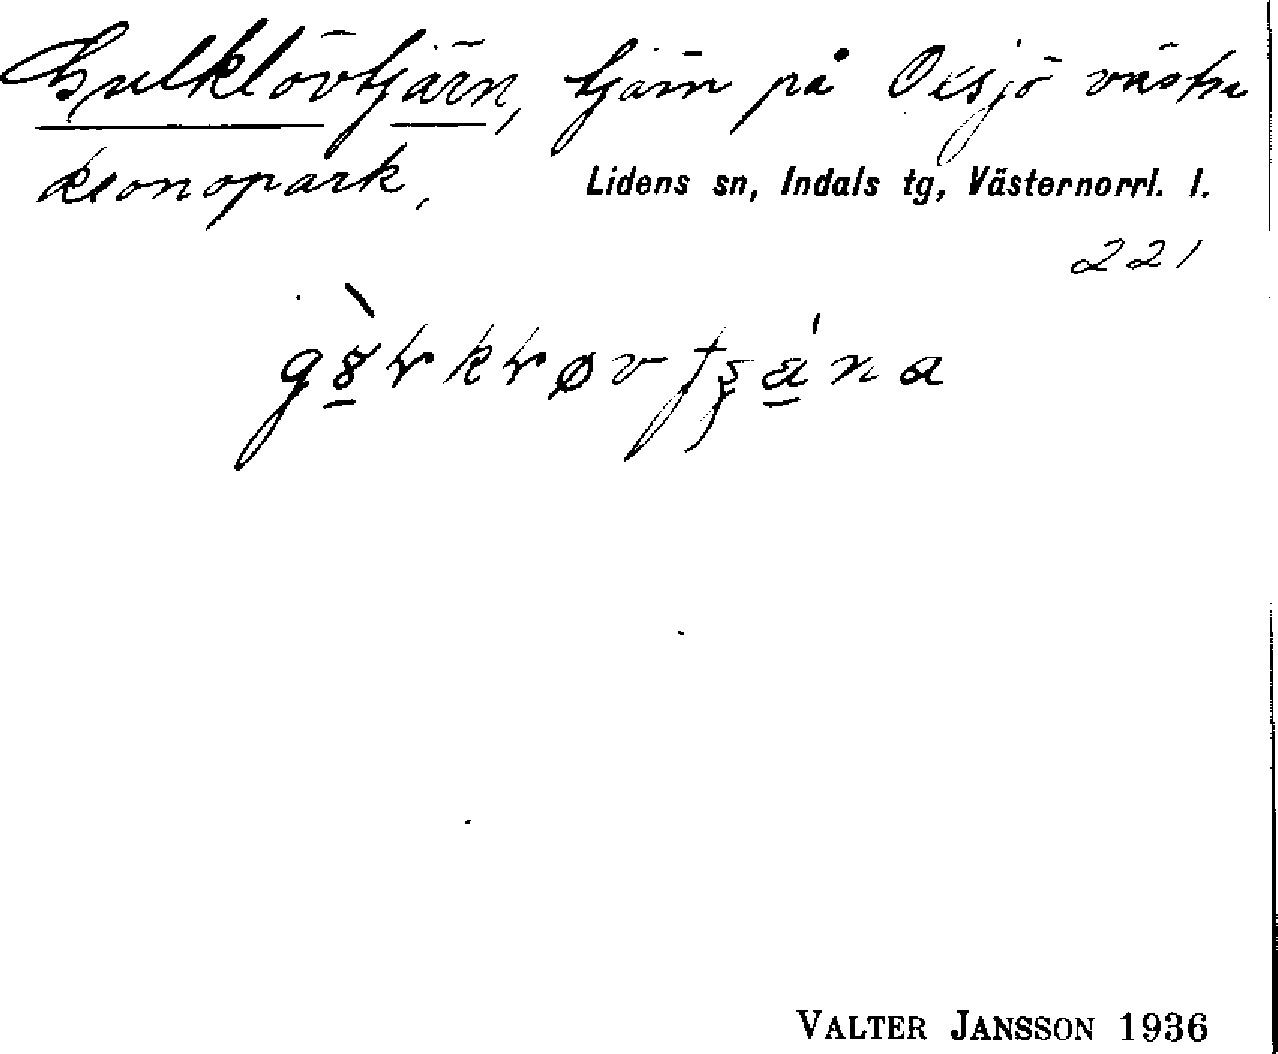 Gulklövtjärn, tjärn på Oxsjö västra
kronopark. Lidens sn, Indals tg, Västernorrl. l.
221
VALTER JANSSON 1936